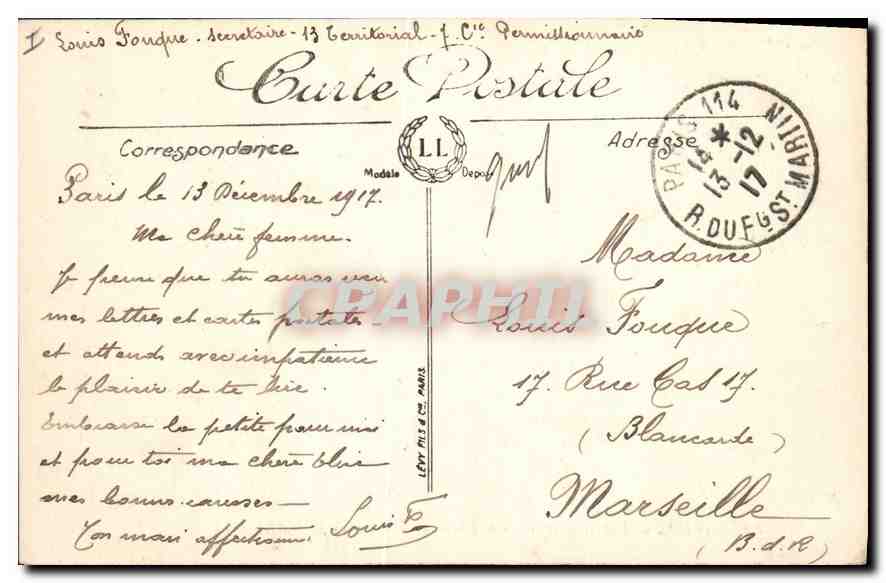 Louis Fouque - secretaire - 13 Territorial - 7 Cie Permissionnaire
Carte Postale
Correspondance
Adresse
LL
Modèle Déposé
PARIS 114
14 *
13 -12
17
R. DU FG ST MARTIN
Paris le 13 Décembre 1917.
Ma chère femme.
Je pense que tu auras reçu
mes lettres et cartes postales -
et attends avec impatience
le plaisir de te lire.
Embrasse la petite pour moi
et pour toi ma chère
mes bonnes caresses -
Ton mari affectionné Louis F
Madame
Louis Fouque
17. Rue Cas 17.
(Blancarde)
Marseille
(B.d.R)
LÉVY FILS & Cie, PARIS.
CPAPHIL